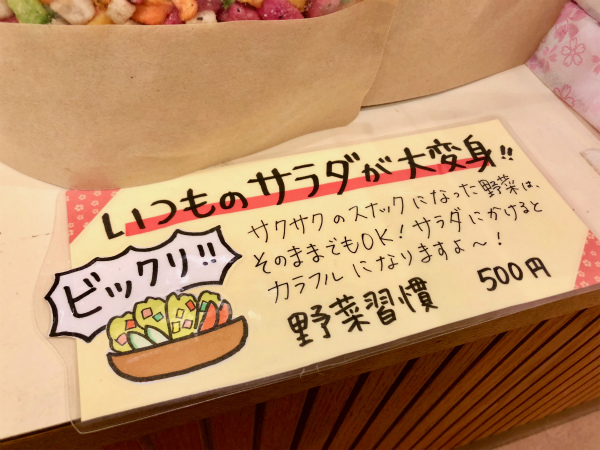 いつものサラダが大変身!!
サクサクのスナックになった野菜は、
そのままでもOK!サラダにかけると
カラフルになりますよ～!
ビックリ!!
野菜習慣 500円